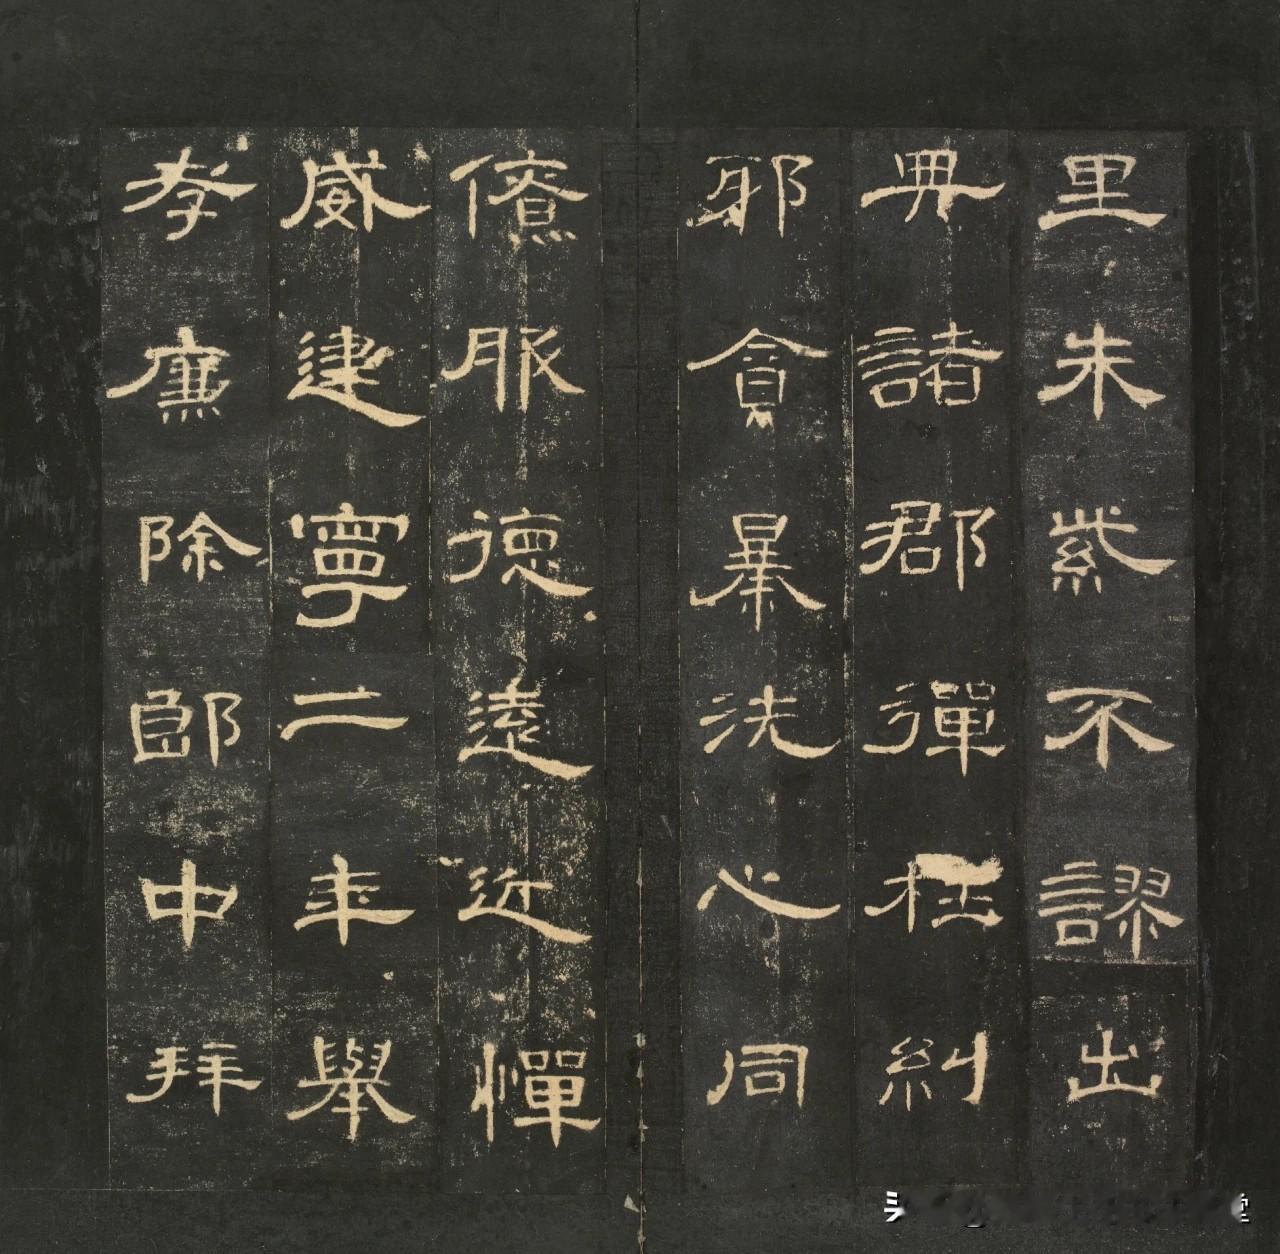 里朱紫不謬出
典諸郡彈枉糾
邪貪暴洗心同
僚服德遠近憚
威建寧二年舉
孝廉除郎中拜